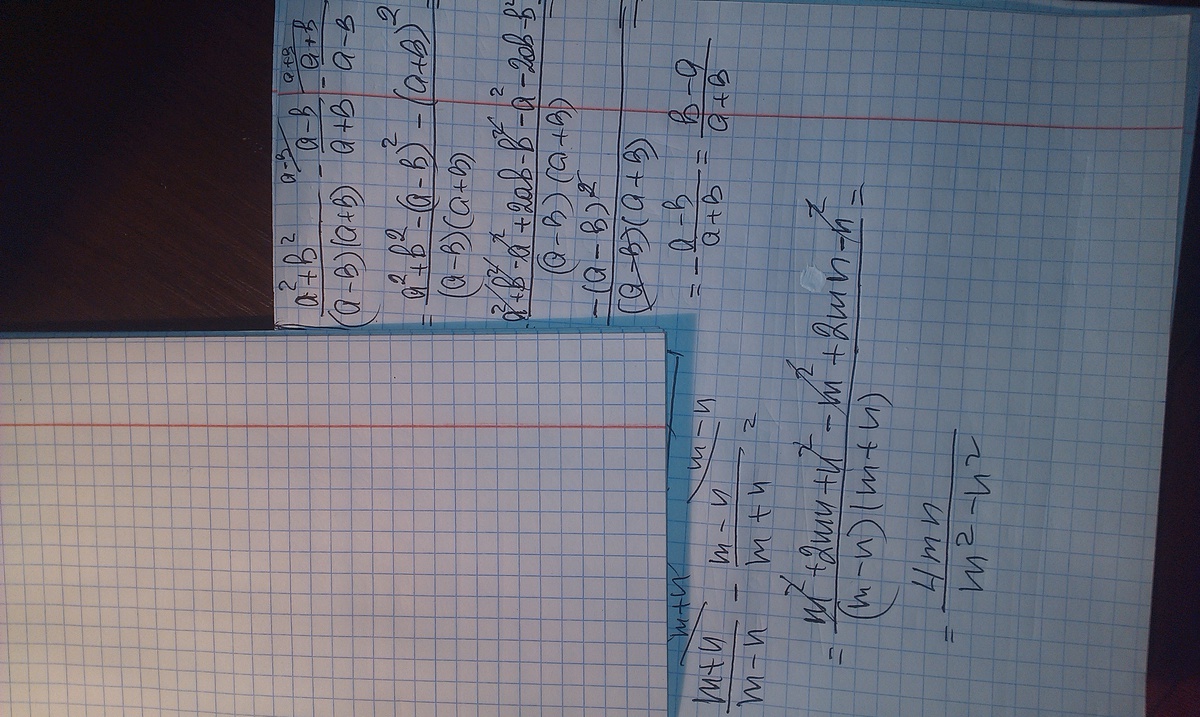 a²+b²/(a-b)(a+b) - a-b/a+b - a+b/a-b
a-b a+b
= a²+b²-(a-b)²-(a+b)²/(a-b)(a+b) =
a²+b²-a²+2ab-b²-a²-2ab-b²/(a-b)(a+b) =
-(a-b)²/(a-b)(a+b) =
= - a-b/a+b = b-a/a+b
m+n m-n
m+n/m-n - m-n/m+n =
= m²+2mn+n²-m²+2mn-n²/(m-n)(m+n) =
= 4mn/m²-n²